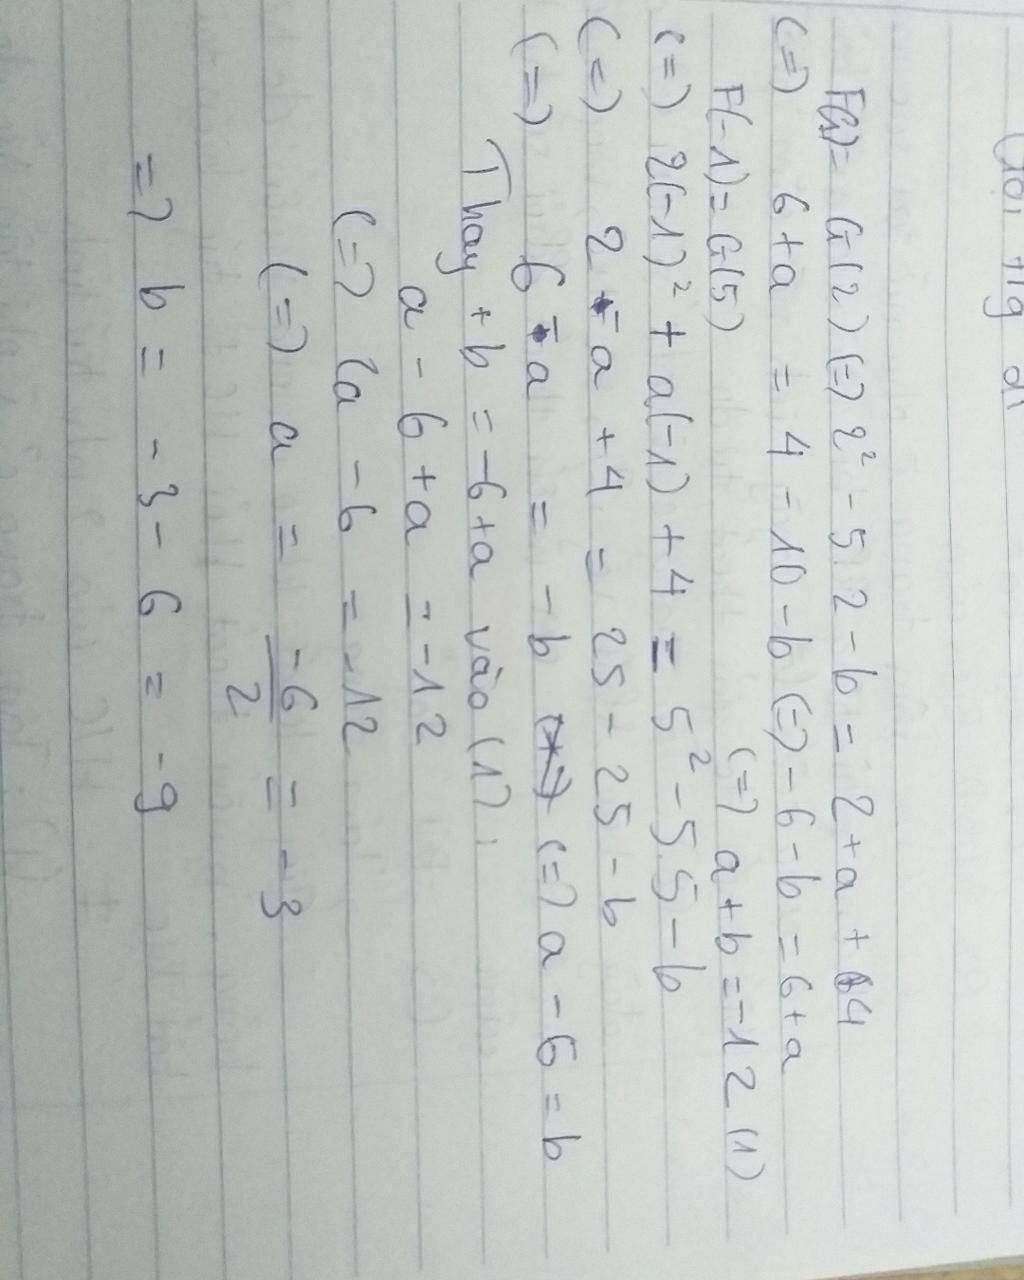 F(1) = G(2) (=) 2² - 5.2 - b = 2 + a + 4
(=) 6 + a = 4 - 10 - b (=) - 6 - b = 6 + a
(=) a + b = -12 (1)
F(-1) = G(5)
(=) 2(-1)² + a(-1) + 4 = 5² - 5.5 - b
(=) 2 - a + 4 = 25 - 25 - b
(=) 6 - a = - b (=) a - 6 = b
Thay + b = -6 + a vào (1).
a - 6 + a = -12
(=) 2a - 6 = -12
(=) a = -6/2 = -3
=> b = -3 - 6 = -9